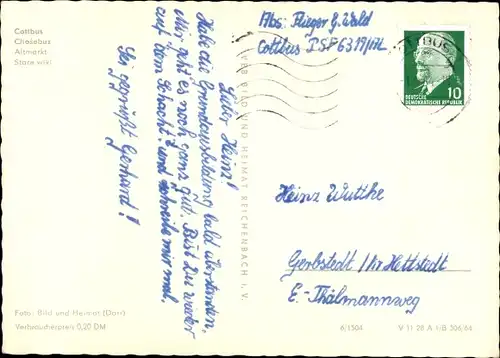 Cottbus
Chośebus
Altmarkt
Stare wiki
Lieber Heinz!
Habe die Grundausbildung bald überstanden,
Mir geht es noch ganz gut. Bist Du wieder
auf dem Schacht? und schreibe mir mal.
Sei gegrüßt Gerhard!
Foto: Bild und Heimat (Darr)
Verbraucherpreis 0,20 DM
VEB BILD UND HEIMAT REICHENBACH i. V.
Abs: Flieger G. Wald
Cottbus PSF 6319/
COTTBUS
10
DEUTSCHE
DEMOKRATISCHE REPUBLIK
Heinz Wuttke
Gerbstedt / Kr Hettstedt
E.-Thälmannweg
6/1504
V 11 28 A 1/B 306/66